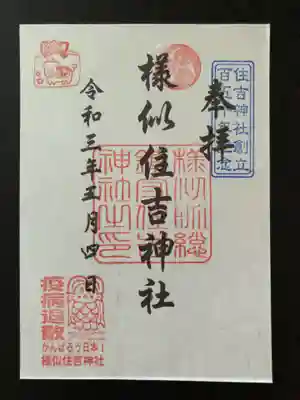 奉拝
住吉神社創立
百五十年記念
様似住吉神社
様似総
鎮守住吉
神社之印
令和三年五月四日
疫病退散
がんばろう日本!
様似住吉神社